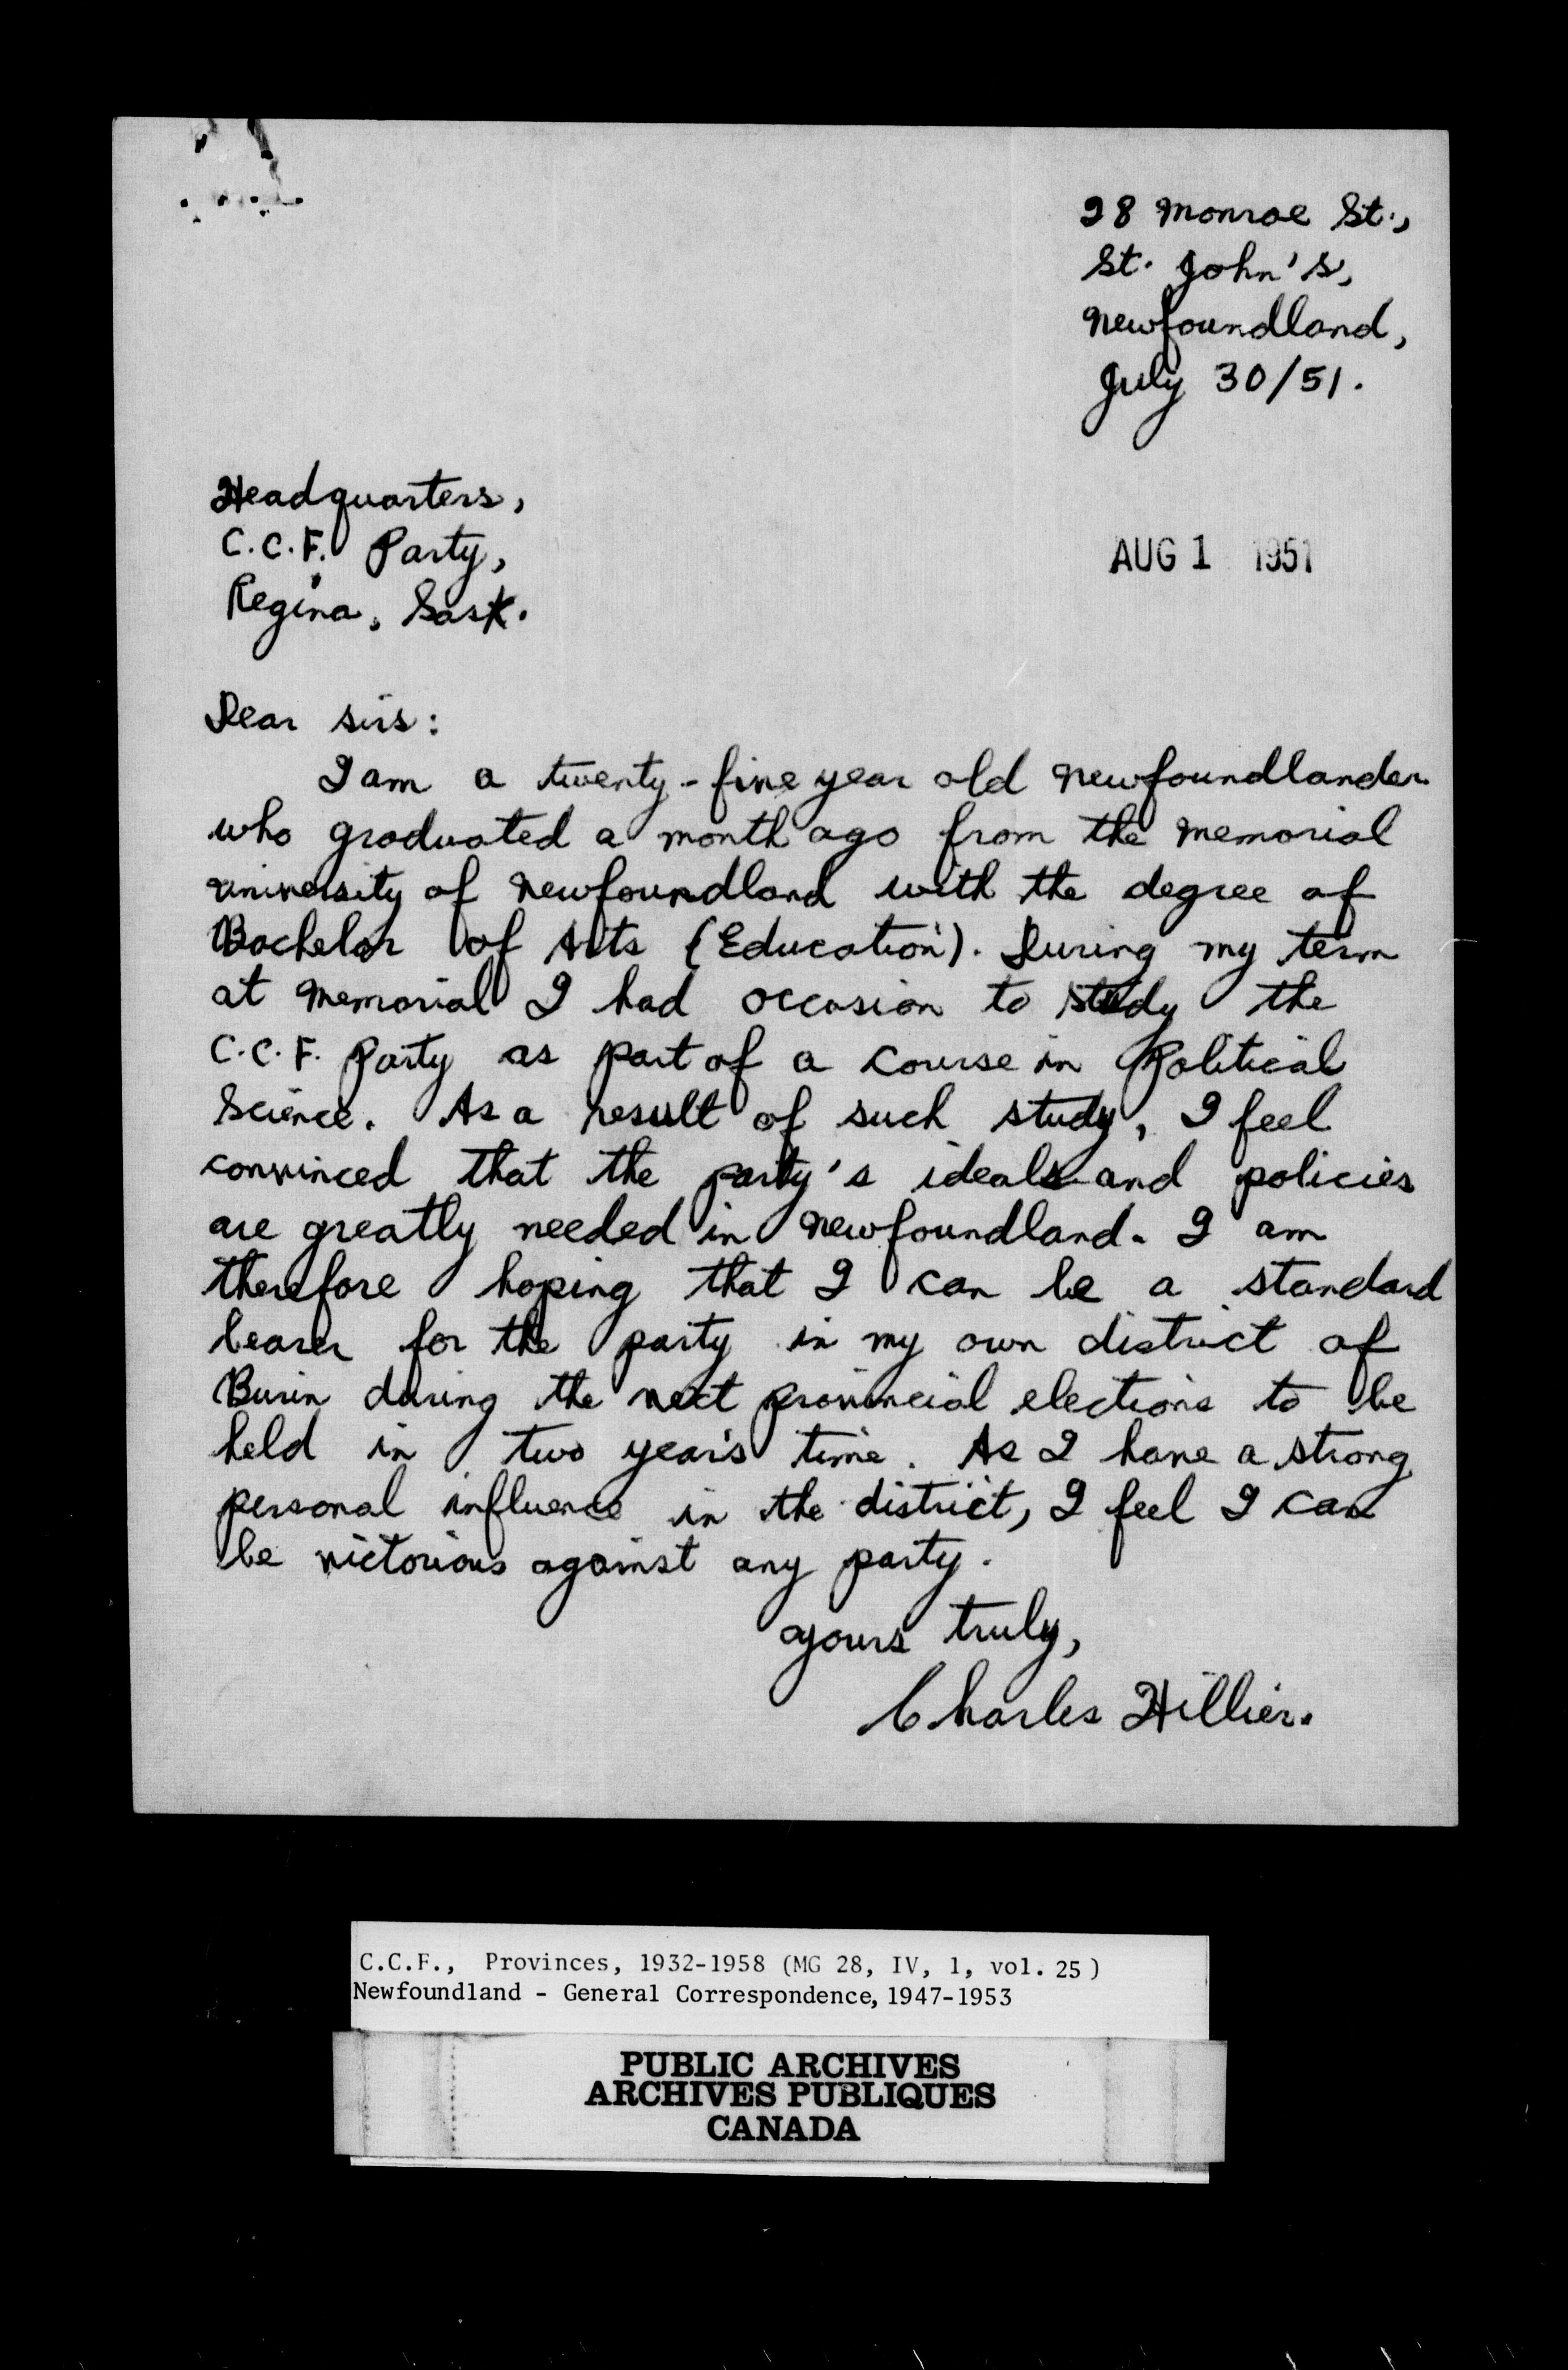 28 Monroe St.,
St. John's,
Newfoundland,
July 30/51.
Headquarters,
C.C.F. Party,
Regina, Sask.
AUG 1 1951
Dear sirs:
I am a twenty-five year old Newfoundlander
who graduated a month ago from the Memorial
University of Newfoundland with the degree of
Bachelor of Arts (Education). During my term
at Memorial I had occasion to study the
C.C.F. Party as part of a course in Political
Science. As a result of such study, I feel
convinced that the party's ideals and policies
are greatly needed in Newfoundland. I am
therefore hoping that I can be a standard
bearer for the party in my own district of
Burin during the next provincial elections to be
held in two year's time. As I have a strong
personal influence in the district, I feel I can
be victorious against any party.
Yours truly,
Charles Hillier.
C.C.F., Provinces, 1932-1958 (MG 28, IV, 1, vol. 25)
Newfoundland - General Correspondence, 1947-1953
PUBLIC ARCHIVES
ARCHIVES PUBLIQUES
CANADA